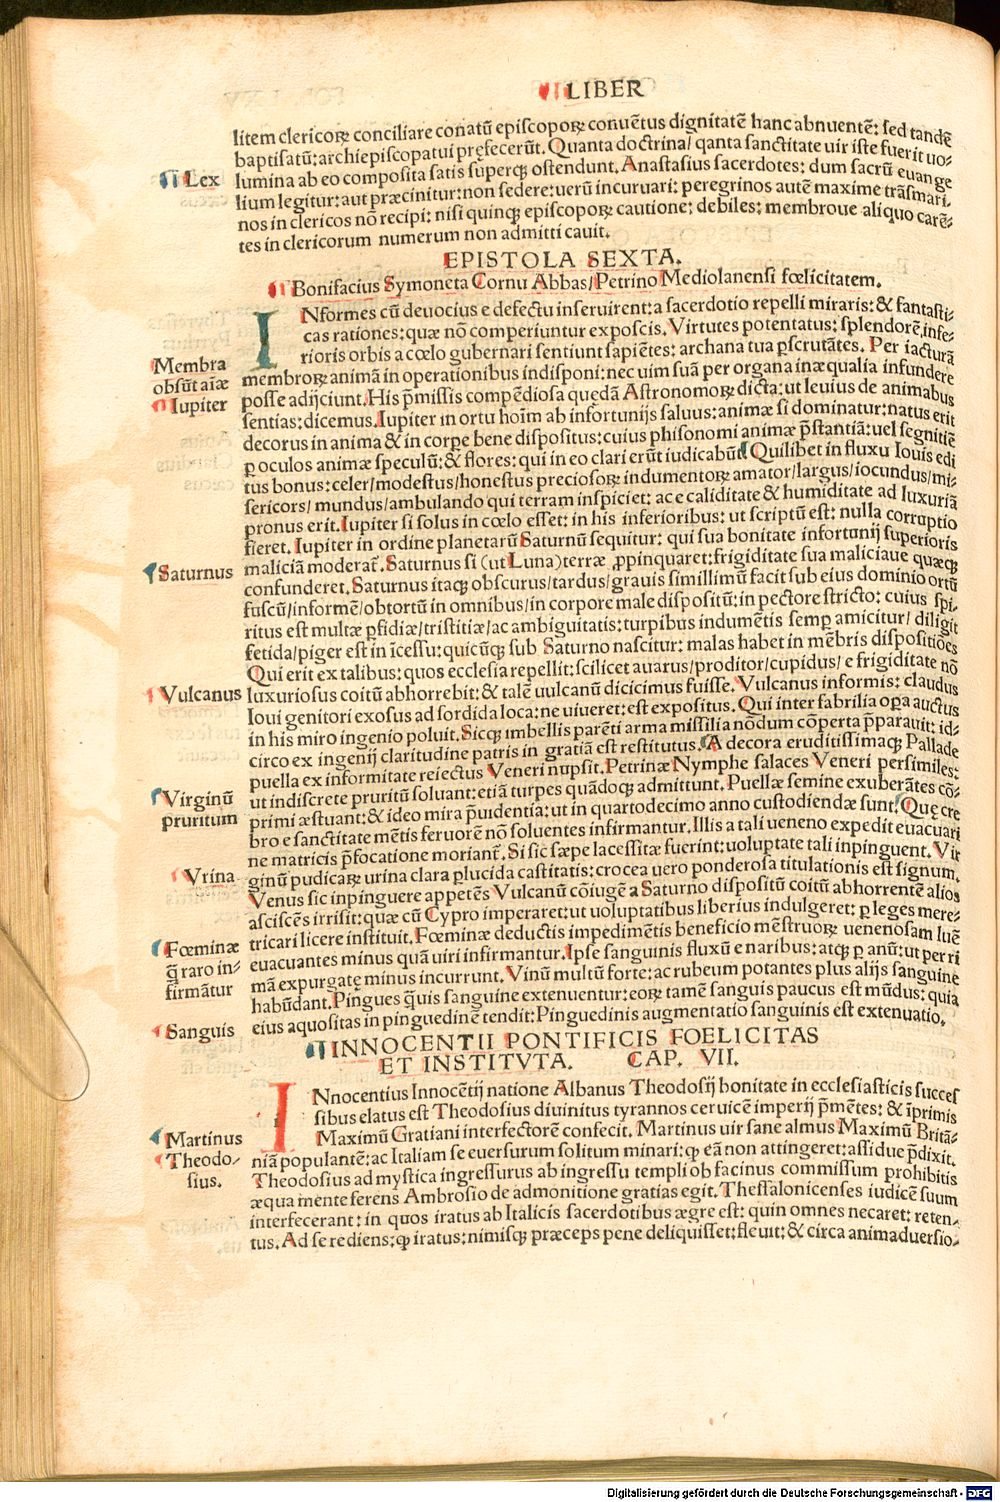 LIBER
litem clericoꝝ conciliare conatũ episcopoꝝ conuẽtus dignitatẽ hanc abnuentẽ: sed tandẽ
baptisatũ: archiepiscopatui pręfecerũt. Quanta doctrina/ qanta sanctitate uir iste fuerit uo-
lumina ab eo composita satis superqꝫ ostendunt. Anastasius sacerdotes: dum sacrũ euange
Lex
lium legitur: aut præcinitur: non sedere: uerũ incuruari: peregrinos autẽ maxime trãsmari-
nos in clericos nõ recipi: nisi quinqꝫ episcopoꝝ cautione: debiles: membroue aliquo carẽ-
tes in clericorum numerum non admitti cauit.
EPISTOLA SEXTA.
Bonifacius Symoneta Cornu Abbas/ Petrino Mediolanensi fœlicitatem.
INformes cũ deuocius e defectu inseruirent: a sacerdotio repelli miraris: & fantasti-
cas rationes: quæ nõ comperiuntur exposcis. Virtutes potentatus: splendorẽ infe-
rioris orbis a cœlo gubernari sentiunt sapiẽtes: archana tua ꝑscrutãtes. Per iacturã
Membra
obsũt aĩæ
membroꝝ animã in operationibus indisponi: nec uim suã per organa inæqualia infundere
posse adijciunt. His p̃missis compẽdiosa quędã Astronomoꝝ dicta: ut leuius de animabus
Iupiter
sentias: dicemus. Iupiter in ortu hoĩm ab infortunijs saluus: animæ si dominatur: natus erit
decorus in anima & in corpe bene dispositus: cuius phisonomi animæ p̃stantiã: uel segnitiẽ
ꝑ oculos animæ speculũ: & flores: qui in eo clari erũt iudicabũt. Quilibet in fluxu Iouis edi
tus bonus: celer/ modestus/ honestus preciosoꝝ indumentoꝝ amator/ largus/ iocundus/ mi-
sericors/ mundus/ ambulando qui terram inspiciet: ac e caliditate & humiditate ad luxuriã
pronus erit. Iupiter si solus in cœlo esset: in his inferioribus: ut scriptũ est: nulla corruptio
fieret. Iupiter in ordine planetarũ Saturnũ sequitur: qui sua bonitate infortunij superioris
maliciã moderat̃. Saturnus si (ut Luna) terræ ꝓpinquaret: frigiditate sua maliciaue quæqꝫ
Saturnus
confunderet. Saturnus itaqꝫ obscurus/ tardus/ grauis simillimũ facit sub eius dominio ortũ
fuscũ/ informẽ/ obtortũ in omnibus/ in corpore male dispositũ: in pectore stricto: cuius spi-
ritus est multæ ꝑfidiæ/ tristitiæ/ ac ambiguitatis: turpibus indumẽtis semꝑ amicitur/ diligit
fetida/ piger est in ĩcessu: quicũqꝫ sub Saturno nascitur: malas habet in mẽbris dispositiões
Qui erit ex talibus: quos ecclesia repellit: scilicet auarus/ proditor/ cupidus/ e frigiditate nõ
Vulcanus
luxuriosus coitũ abhorrebit: & talẽ uulcanũ dicicimus fuisse. Vulcanus informis: claudus
Ioui genitori exosus ad sordida loca: ne uiueret: est expositus. Qui inter fabrilia oꝑa auctus
in his miro ingenio poluit. Sicqꝫ imbellis parẽti arma missilia nõdum cõperta p̃parauit: id-
circo ex ingenij claritudine patris in gratiã est restitutus. A decora eruditissimaqꝫ Pallade
puella ex informitate reiectus Veneri nupsit. Petrinæ Nymphe salaces Veneri persimiles:
ut indiscrete pruritũ soluant: etiã turpes quãdoqꝫ admittunt. Puellæ semine exuberãtes cõ-
Virginũ
pruritum
primi æstuant: & ideo mira p̃uidentia: ut in quartodecimo anno custodiendæ sunt. Quę cre
bro e sanctitate mẽtis feruorẽ nõ soluentes infirmantur. Illis a tali ueneno expedit euacuari
ne matricis p̃focatione moriant̃. Si sic sæpe lacessitæ fuerint: uoluptate tali inpinguent. Vir
Vrina
ginũ pudicaꝝ urina clara ꝑlucida castitatis: crocea uero ponderosa titulationis est signum.
Venus sic inpinguere appetẽs Vulcanũ cõiugẽ a Saturno dispositũ coitũ abhorrentẽ alios
asciscẽs irrisit: quæ cũ Cypro imperaret: ut uoluptatibus liberius indulgeret: ꝑ leges mere-
tricari licere instituit. Fœminæ deductis impedimẽtis beneficio mẽstruoꝝ uenenosam luẽ
Fœminæ
q̃ raro in-
firmãtur
euacuantes minus quã uiri infirmantur. Ipse sanguinis fluxũ e naribus: atqꝫ ꝑ anũ: ut per ri
mã expurgatę minus incurrunt. Vinũ multũ forte: ac rubeum potantes plus alijs sanguine
habũdant. Pingues q̃uis sanguine extenuentur: eoꝝ tamẽ sanguis paucus est mũdus: quia
Sanguis
eius aquositas in pinguedinẽ tendit: Pinguedinis augmentatio sanguinis est extenuatio.
INNOCENTII PONTIFICIS FOELICITAS
ET INSTITVTA. CAP. VII.
INnocentius Innocẽtij natione Albanus Theodosij bonitate in ecclesiasticis succes
sibus elatus est Theodosius diuinitus tyrannos ceruicẽ imperij p̃mẽtes: & ĩprimis
Maximũ Gratiani interfectorẽ confecit. Martinus uir sane almus Maximũ Britã-
Martinus
Theodo-
sius.
niã populantẽ: ac Italiam se euersurum solitum minari: ꝙ eã non attingeret: assidue p̃dixit.
Theodosius ad mystica ingressurus ab ingressu templi ob facinus commissum prohibitis
æqua mente ferens Ambrosio de admonitione gratias egit. Thessalonicenses iudicẽ suum
interfecerant: in quos iratus ab Italicis sacerdotibus ægre est: quin omnes necaret: reten-
tus. Ad se rediens: ꝙ iratus: nimisqꝫ præceps pene deliquisset: fleuit: & circa animaduersio-
Digitalisierung gefördert durch die Deutsche Forschungsgemeinschaft - DFG